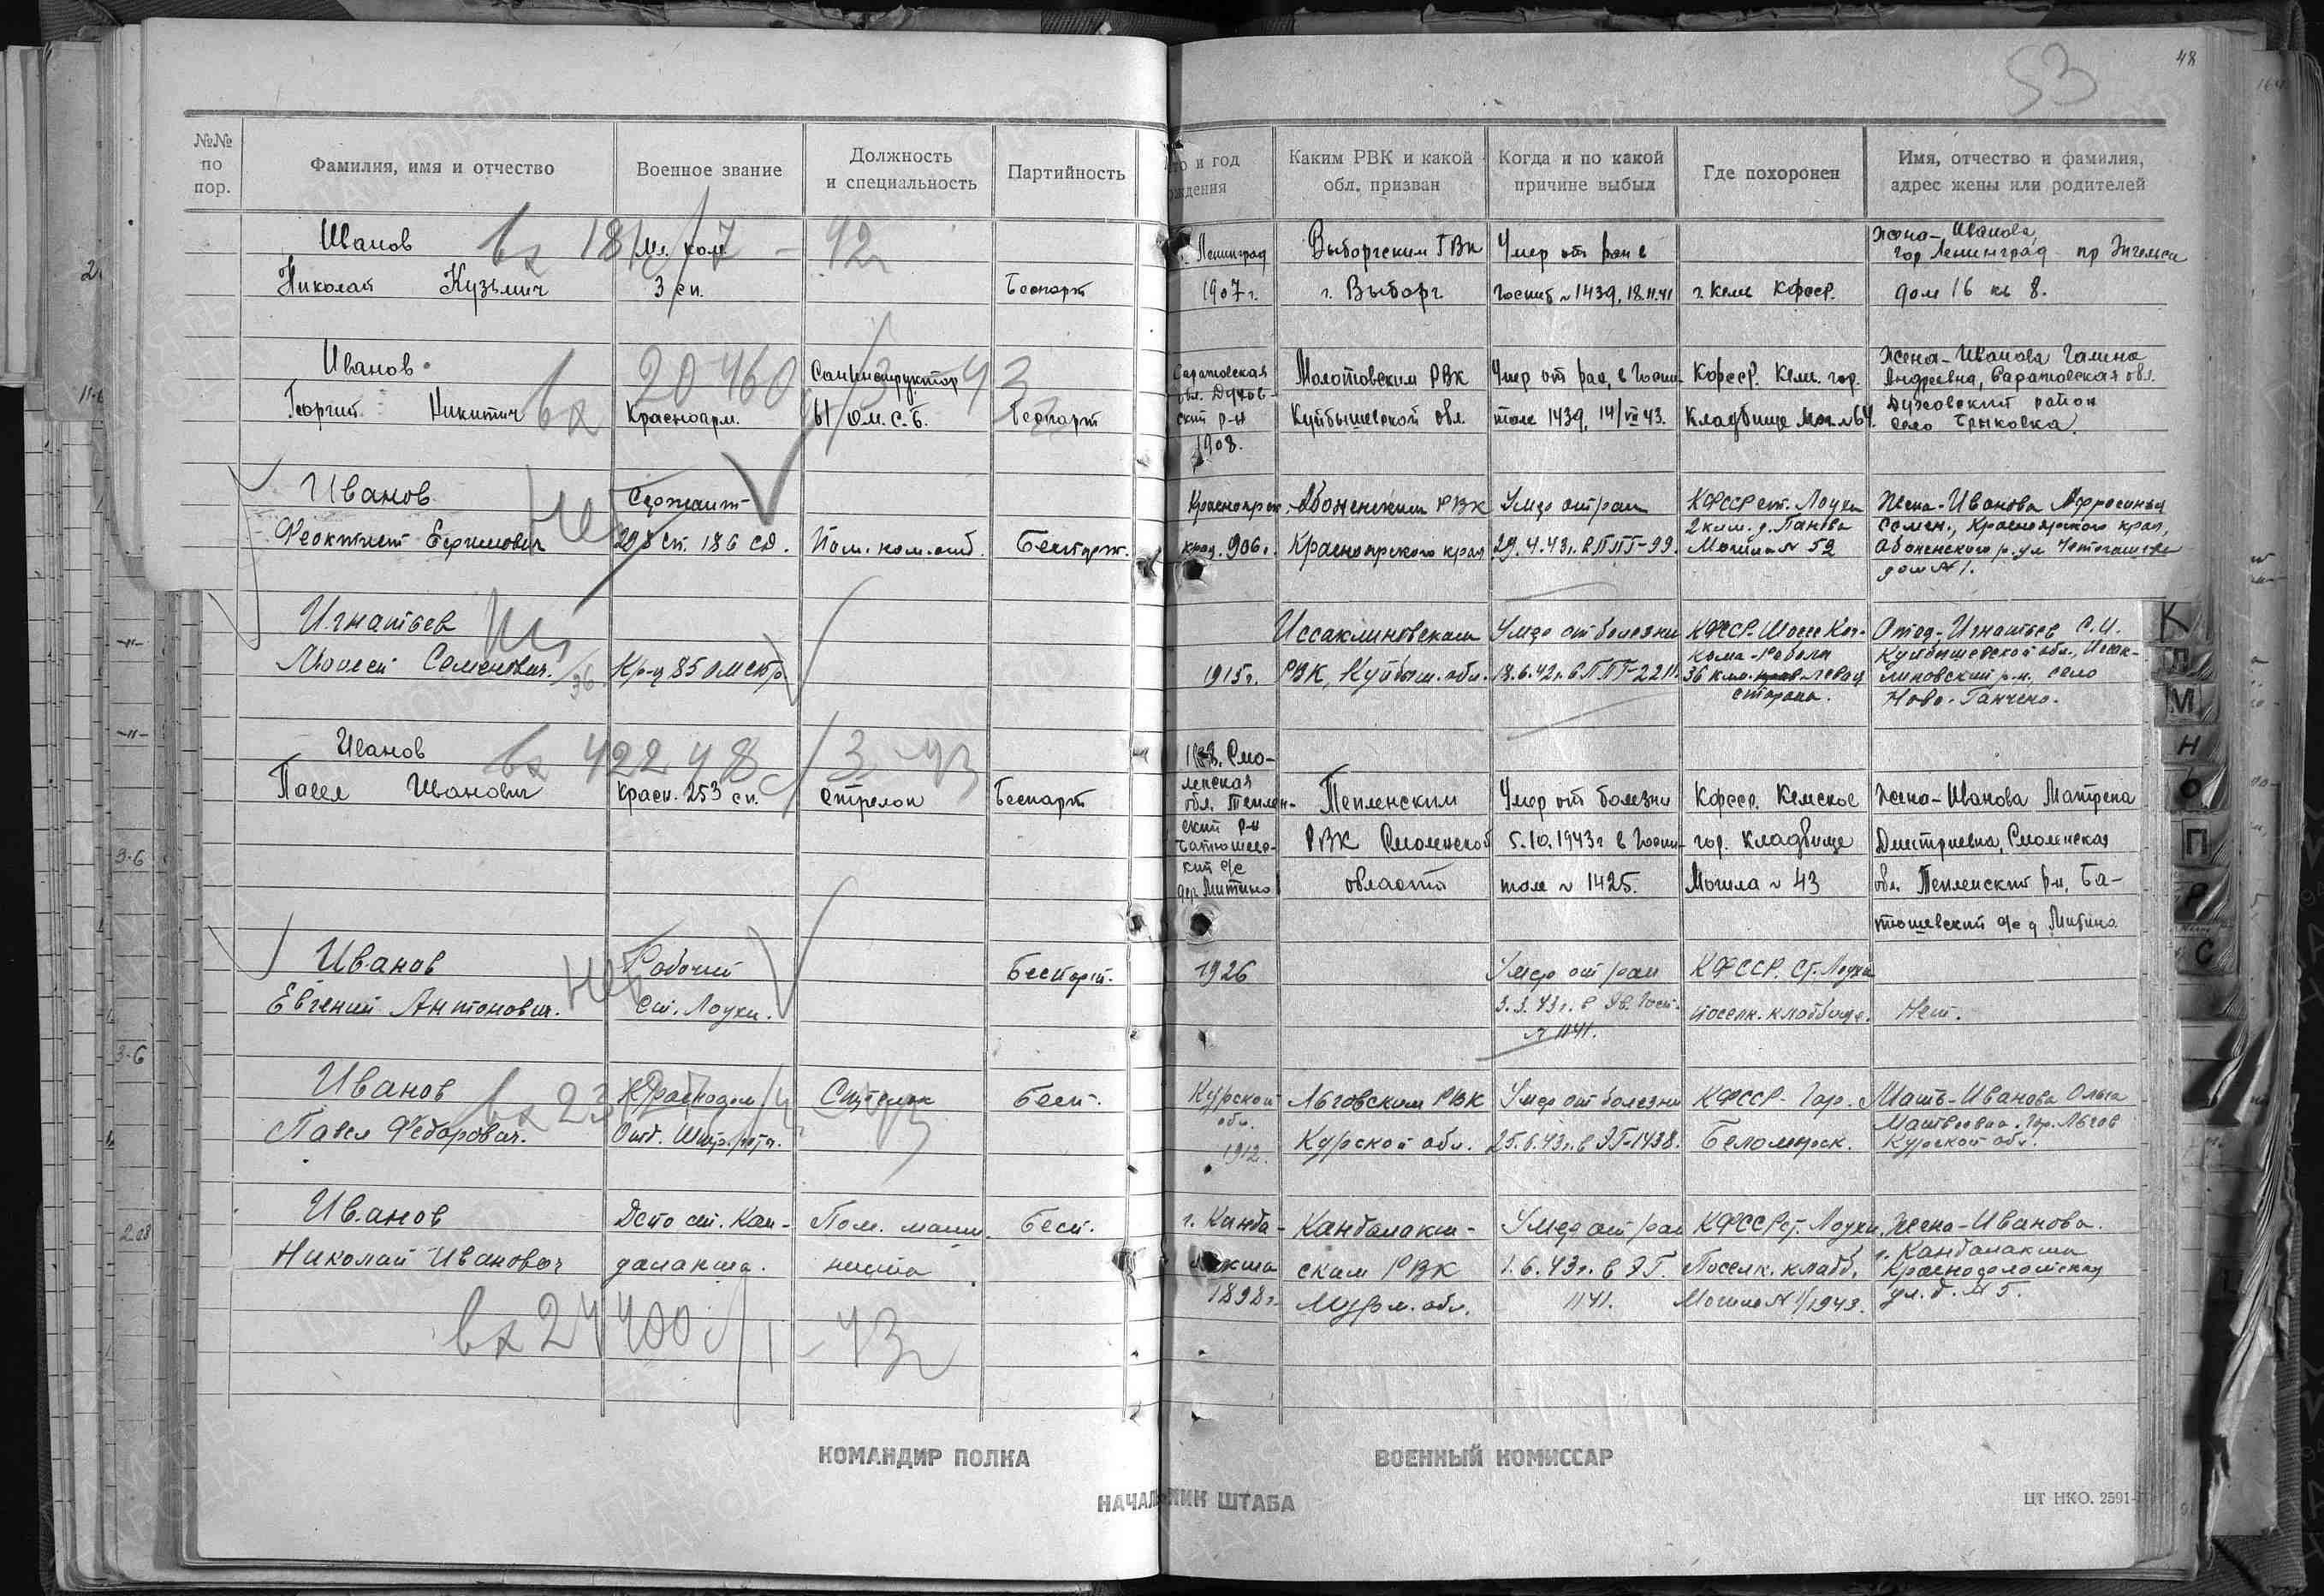 48
53
№№ по пор.
Фамилия, имя и отчество
Военное звание
Должность и специальность
Партийность
и год рождения
Каким РВК и какой обл, призван
Когда и по какой причине выбыл
Где похоронен
Имя, отчество и фамилия, адрес жены или родителей
Иванов
Николай Кузьмич
Мл. ком.
3 сп.
Беспарт
Ленинград
1907 г.
Выборгским ГВК
г. Выборг
Умер от ран в
госпит ~ 1439, 18.11.41
г. Кемь КФССР.
Жена - Иванова,
гор Ленинград пр Энгельса
дом 16 кв 8.
вх 18 / 7 - 42г
Иванов
Георгий Никитич
Красноарм.
Санинструктор
О.М.С.Б.
Беспарт
Саратовская
обл. Духов-
ский р-н
1908.
Молотовским РВК
Куйбышевской обл.
Умер от ран, в госпи-
тале 1439, 14/VII 43.
КФССР. Кем. гор.
кладбище мог. ~ 64.
Жена - Иванова Галина
Андреевна, Саратовская обл.
Духовский район
село Брыковка.
вх 20460 / 3 - 43
Иванов
Феоктист Ефимович
Нет
Сержант
298 сп. 186 сд.
Пом. ком. отд.
Беспарт.
Красноярск.
край. 906 г.
Абаненским РВК
Красноярского края
Умер от ран
29.4.43г. в ППГ-99.
КФССР ст. Лоухи
2 клм. д. Панова
Могила № 52
Жена - Иванова Афросинья
Семен., Красноярского края,
Абаненского р.
дом № 1.
Игнатьев
Моисей Семенович.
Кр-ц 85 ОМСБр
1915г.
Иссаклиновским
РВК, Куйбыш. обл.
Умер от болезни
18.6.42г. в ППГ-2211.
КФССР. Шоссе Коч-
кома - Реболы
36 клм. левая
сторона.
Отец - Игнатьев С.И.
Куйбышевской обл., Исак-
линовский р-н. село
Ново-Ганчено.
Иванов
Павел Иванович
Красн. 253 сп.
Стрелок
Беспарт
Смо-
ленская
обл. Теплен-
ский р-н
Батюшев-
ский с/с
дер. Митино
Тепленским
РВК Смоленской
области
Умер от болезни
5.10.1943г в госпи-
тале ~ 1425.
КФССР. Кемское
гор. кладбище
Могила ~ 43
Жена - Иванова Матрена
Дмитриевна, Смоленская
обл. Тепленский р-н, Ба-
тюшевский с/с д Митино
вх 42248 / 3 - 43
Иванов
Евгений Антонович.
Нет
Рабочий
Ст. Лоухи.
Беспарт.
1926
Умер от ран
3.3.43г. в Эв. Госп.
№ 1141.
КФССР. Ст. Лоухи
поселк. кладбище.
Нет.
Иванов
Павел Федорович.
Отд. Штр. рота.
Стрелок
Бесп.
Курской
обл.
1912.
Льговским РВК
Курской обл.
Умер от болезни
25.6.43г. в ЭГ-1438.
КФССР - Гор.
Беломорск.
Мать - Иванова Ольга
Матвеевна. Гор. Льгов
Курской обл.
Иванов
Николай Иванович
Депо ст. Кан-
далакша.
Пом. маши-
ниста
Бесп.
г. Канда-
лакша
1898г.
Кандалакш-
ским РВК
Мурм. обл.
Умер от ран
1.6.43г. в ЭГ.
1141.
КФССР ст. Лоухи.
Поселк. кладб.
Могила № 1/1943.
Жена - Иванова.
г. Кандалакша
Краснофлотская
ул. д. № 5.
вх 24400 / 1 - 43г
К
Л
М
Н
О
П
Р
С
КОМАНДИР ПОЛКА
ВОЕННЫЙ КОМИССАР
НАЧАЛЬНИК ШТАБА
ЦТ НКО. 2591-